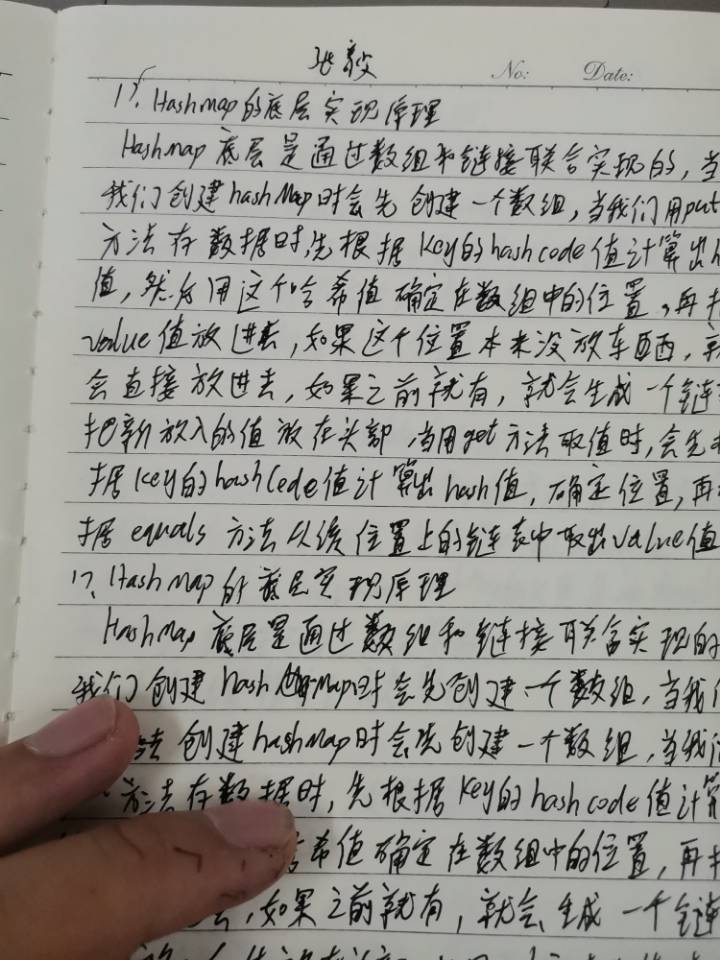 张毅
No: Date:
17. Hashmap的底层实现原理
Hashmap 底层是通过数组和链接联合实现的,当
我们创建hashMap时会先创建一个数组,当我们用put
方法存数据时,先根据key的hashcode值计算出h
值,然后用这个哈希值确定在数组中的位置,再把
value值放进去,如果这个位置本来没放东西,就
会直接放进去,如果之前就有,就会生成一个链
把新放入的值放在头部,当用get方法取值时,会先
据key的hashCede值计算出hash值,确定位置,再
据equals方法从该位置上的链表中取出value值
17. HashMap的底层实现原理
HashMap 底层是通过数组和链接联合实现的
我们创建hash Map时会先创建一个数组,当我们
法创建hashMap时会先创建一个数组,当我们
方法存数据时,先根据key的hashcode值计算
希值确定在数组中的位置,再把
,如果之前就有,就会生成一个链